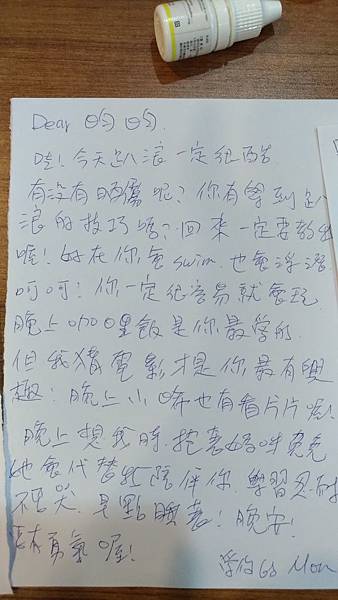 Dear 昀昀
哇！今天趴浪一定很酷
有沒有晒傷呢？你有學到趴
浪的技巧嗎？回來一定要教我
喔！好在你會 swim. 也會浮潛
呵呵！你一定很容易就會玩
晚上咖哩飯是你最
但我猜電影才是你最有興
趣！晚上小 也有看片片喔！
晚上想我時. 抱著
她會代替 陪伴你. 學習忍耐
不哭. 早點睡著！晚安！
勇氣喔！
愛你的 Mom